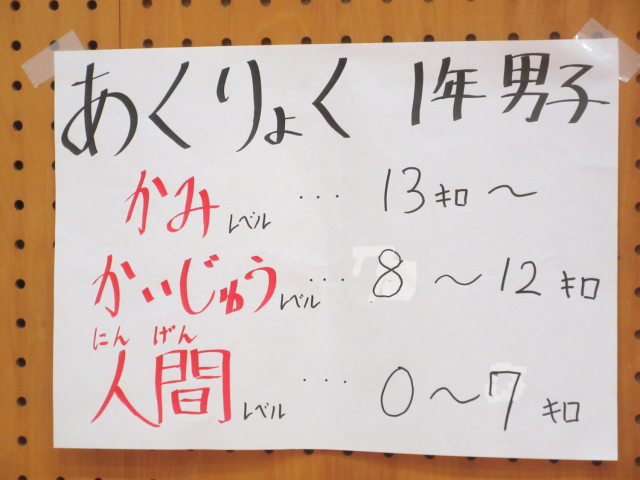 あくりょく 1年男子
かみレベル ・・・ 13キロ〜
かいじゅうレベル ・・・ 8〜12キロ
にん げん
人間レベル ・・・ 0〜7キロ